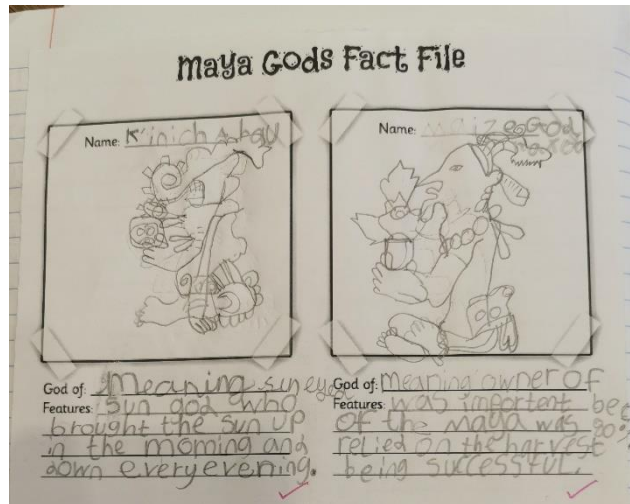 Maya Gods Fact File
Name: K'inich Ahau
Name: Maize God
God of: Meaning sun eyed
Features: Sun god who
brought the sun up
in the morning and
down every evening.
God of: meaning owner of
Features: was importent bec
of the maya was 90%
relied on the harvest
being successful.